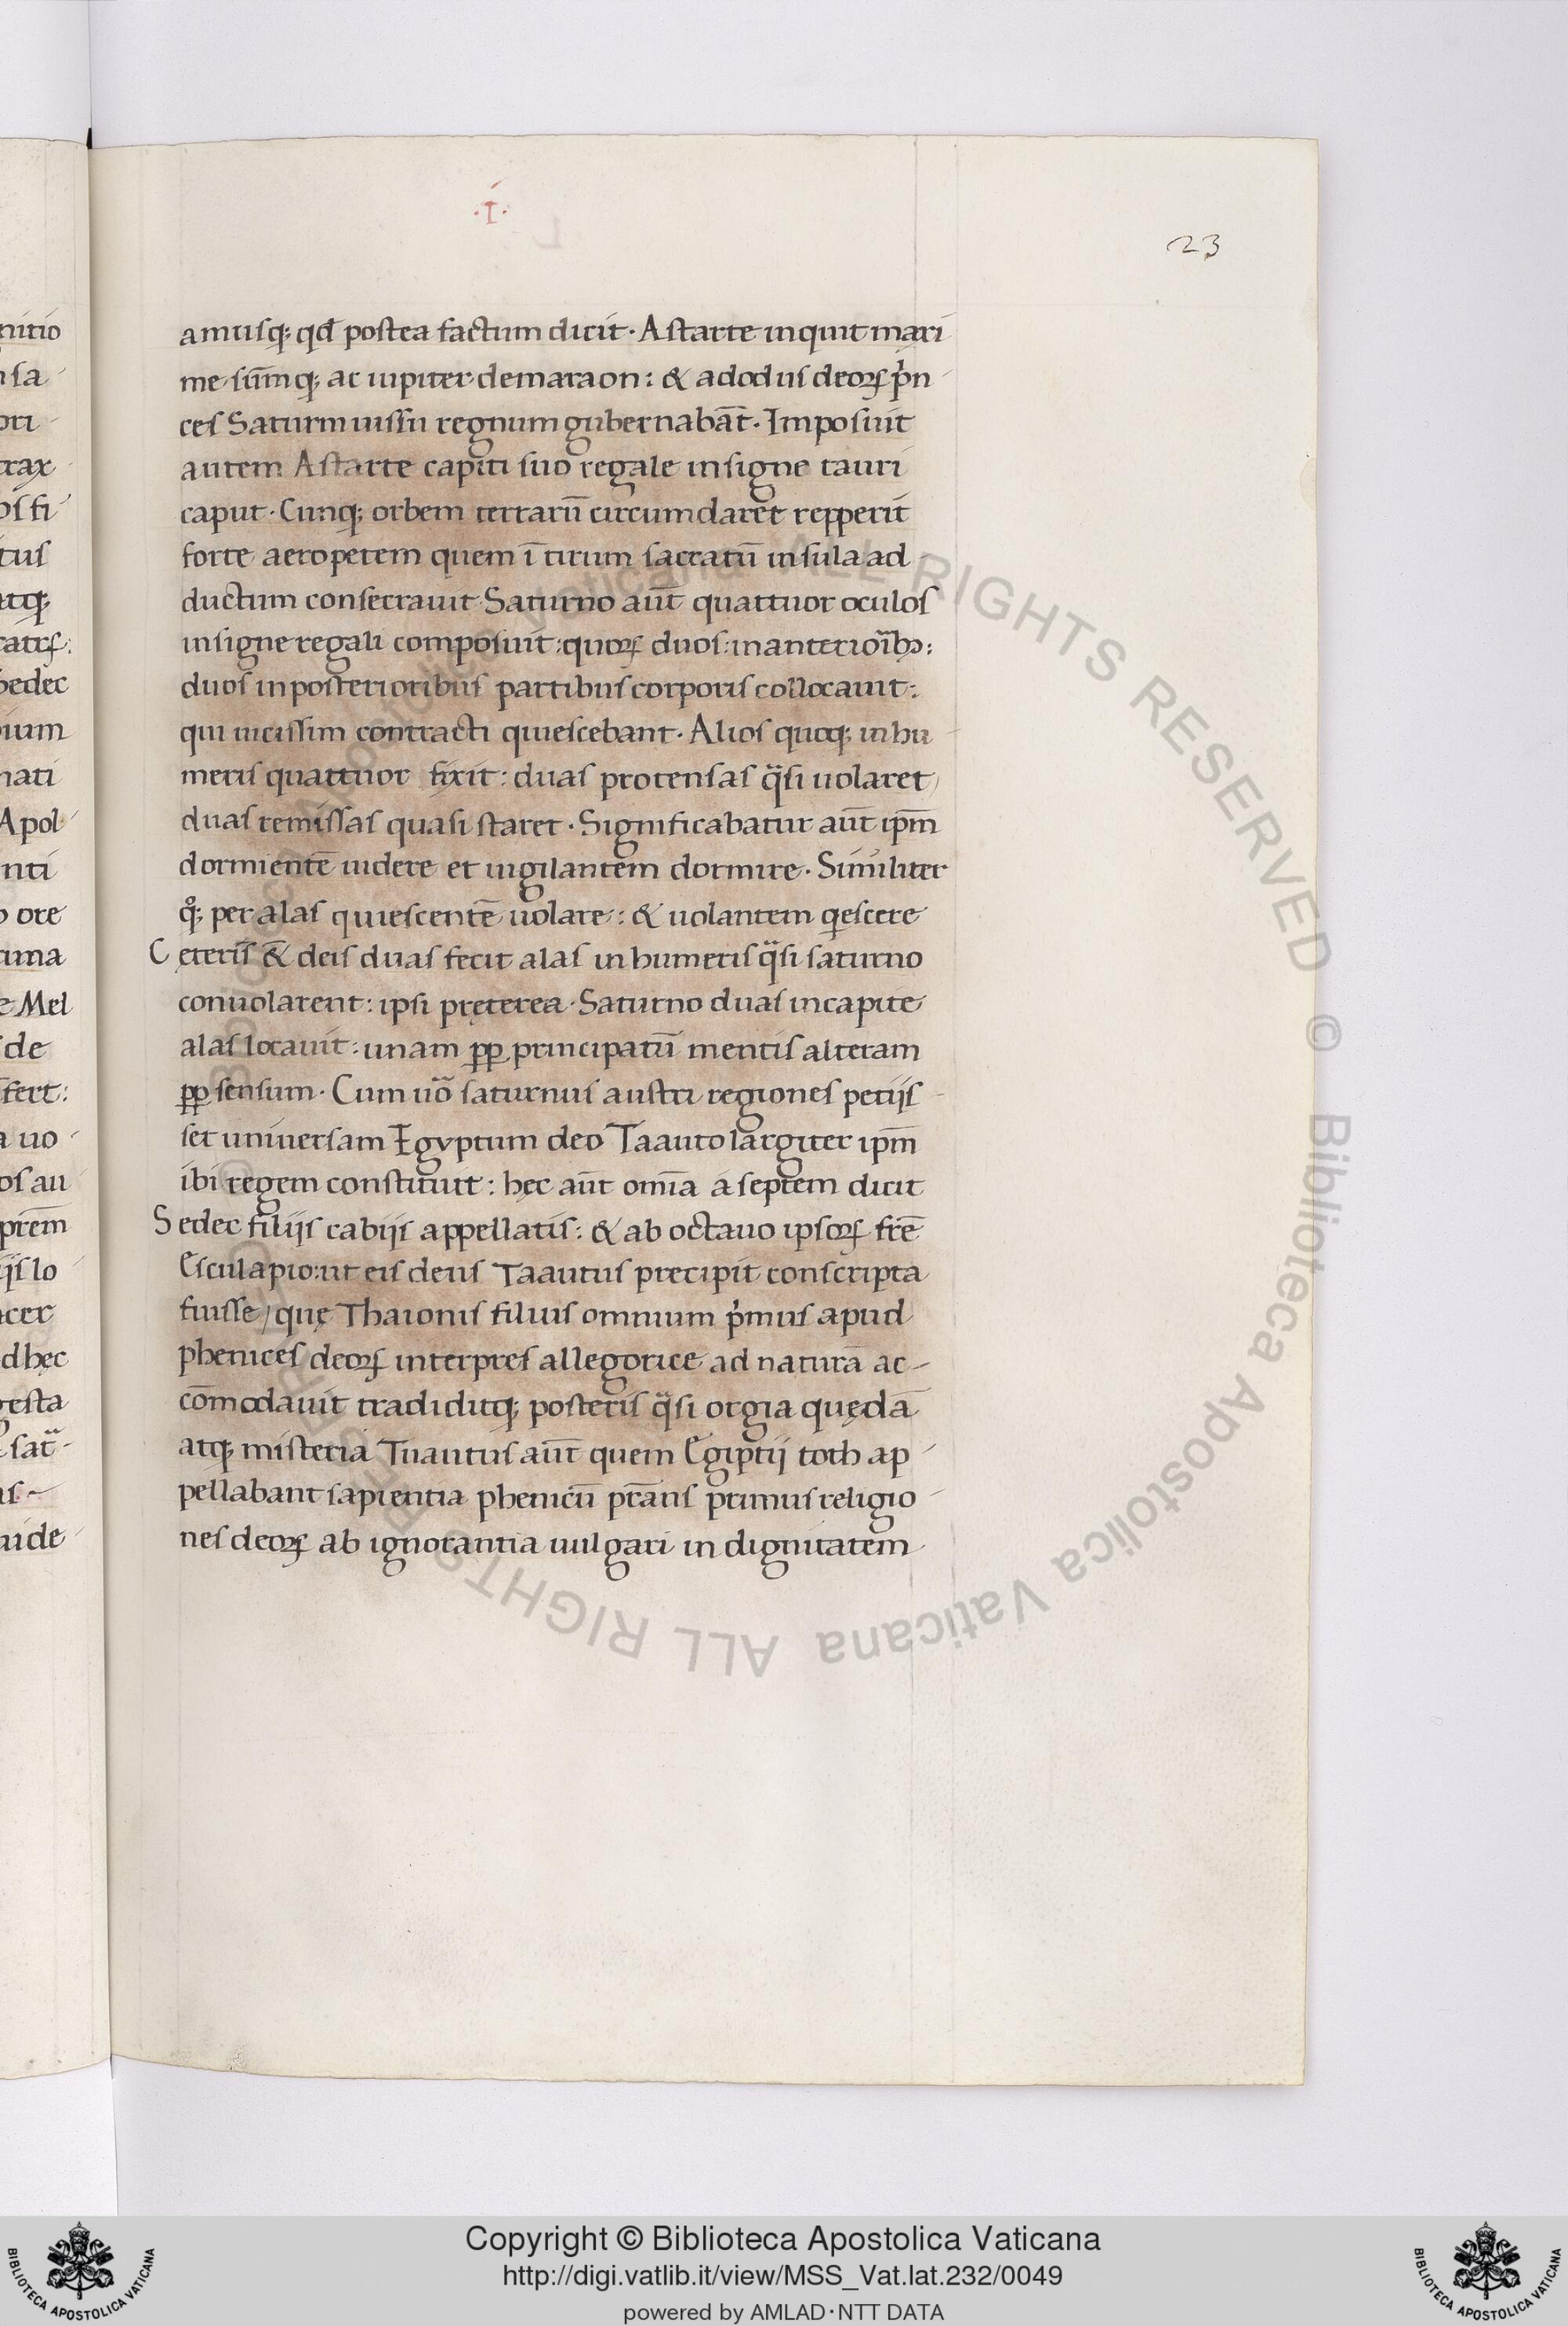 ·i·
23
amusq; qđ postea factum dicit· Astarte inquit maxi
me sūmq; ac iupiter demaraon: & adodus deoꝝ pͥn
ces Saturni iussu regnum gubernabāt· Imposuit
autem Astarte capiti suo regale insigne tauri
caput· Cunq; orbem terrarū circumdaret repperit
forte aeropetem quem ī tirum sacratū insula ad
ductum consecrauit Saturno aūt quattuor oculos
insigne regali composuit: quoꝝ duos: in anterioībꝫ:
duos in posterioribus partibus corporis collocauit:
qui uicissim contracti quiescebant· Alios quoq; in hu
meris quattuor fixit: duas protensas qͣsi uolaret
duas remissas quasi staret· Significabatur aūt ipm̄
dormientē uidere et uigilantem dormire· Similiter
qͦ; per alas quiescentē uolare: & uolantem qescere
Cęteris & deis duas fecit alas in humeris qͣsi saturno
conuolarent: ipsi pręterea Saturno duas in capite
alas locauit: unam pp principatū mentis alteram
pp sensum· Cum uō saturnus austri regiones petijs
set uniuersam Egyptum deo Taauto largiter ipm̄
ibi regem constituit: hęc aūt omīa a septem dicit
Sedec filijs cabijs appellatis: & ab octauo ipsoꝝ frē
Esculapio: ut eis deus Taautus precipit conscripta
fuisse/ quę Thaionis filius omnium pͥmus apud
phenices deoꝝ interpres allegorice ad naturā ac-
cōmodauit tradiditq; posteris qͣsi orgia quędā
atq; misteria Tuautus aūt quem Egiptij toth ap
pellabant sapientia phenicū pr̄ans primus religio
nes deoꝝ ab ignorantia uulgari in dignitatem
nitio
nsa
ori
trax
os fi
tus
atq;
Sedec
nium
nati
Apol
nti
o ore
e Mel
de
fert:
a uo
os au
prēm
ijs lo
acer
d hęc
gesta
uide
Copyright © Biblioteca Apostolica Vaticana
http://digi.vatlib.it/view/MSS_Vat.lat.232/0049
powered by AMLAD·NTT DATA
BIBLIOTECA APOSTOLICA VATICANA
BIBLIOTECA APOSTOLICA VATICANA
© Biblioteca Apostolica Vaticana ALL RIGHTS RESERVED © Biblioteca Apostolica Vaticana ALL RIGHTS RESERVED